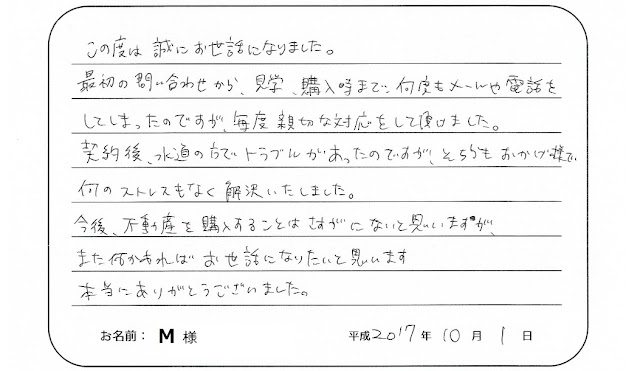 この度は誠にお世話になりました。
最初の問い合わせから、見学、購入時まで、何度もメールや電話を
してしまったのですが、毎度親切な対応をして頂けました。
契約後、水道の方でトラブルがあったのですが、そちらもおかげ様で
何のストレスもなく解決いたしました。
今後、不動産を購入することはさすがにないと思いますが、
また何かあればお世話になりたいと思います
本当にありがとうございました。
お名前： M 様 平成2017年 10月 1日